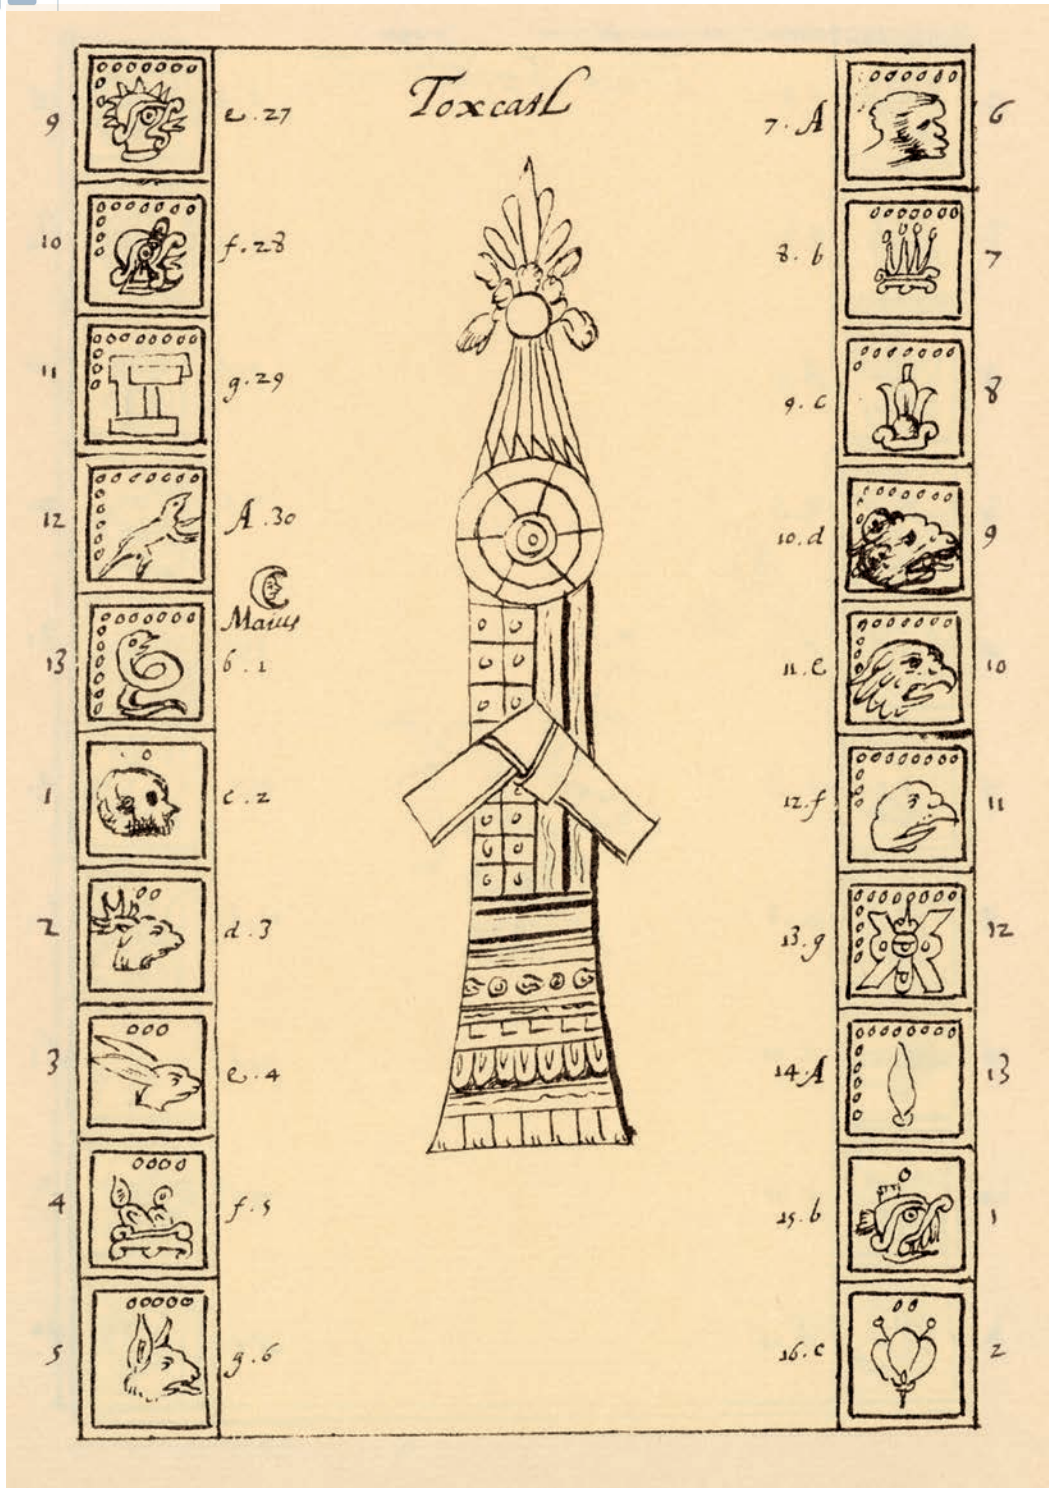 Toxcatl
9 e. 27
10 f. 28
11 g. 29
12 A. 30
Maius
13 b. 1
1 c. 2
2 d. 3
3 e. 4
4 f. 5
5 g. 6
7. A 6
8. b 7
9. c 8
10. d 9
11. e 10
12. f 11
13. g 12
14. A 13
15. b 1
16. c 2